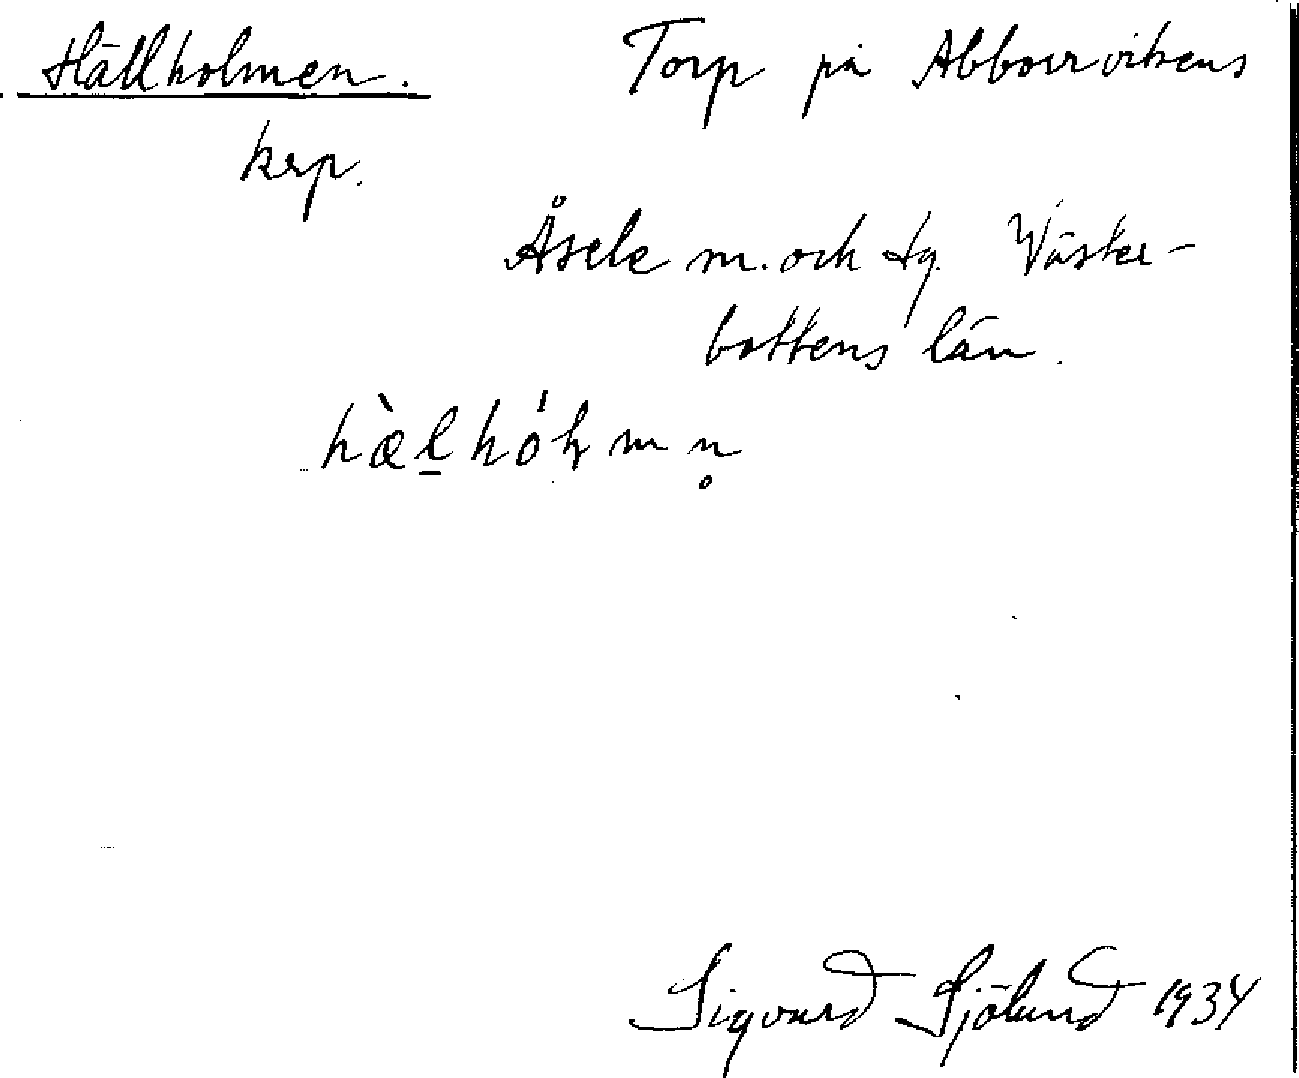 Hällholmen. Torp på Abborrvikens
krp.
Åsele m. och tg. Väster-
bottens län.
hæ̀l̲hólmn̥
Sigvard Sjölund 1934